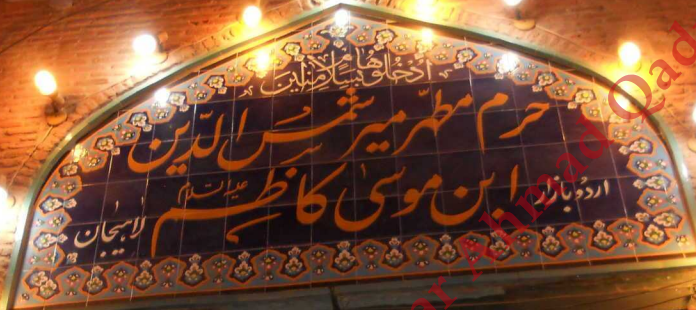 ادخلوها بسلام امنین
حرم مطهر میر شمس الدین
ابن موسی کاظم علیه السلام
اردو بازار
لاهیجان
Ahmad Qad